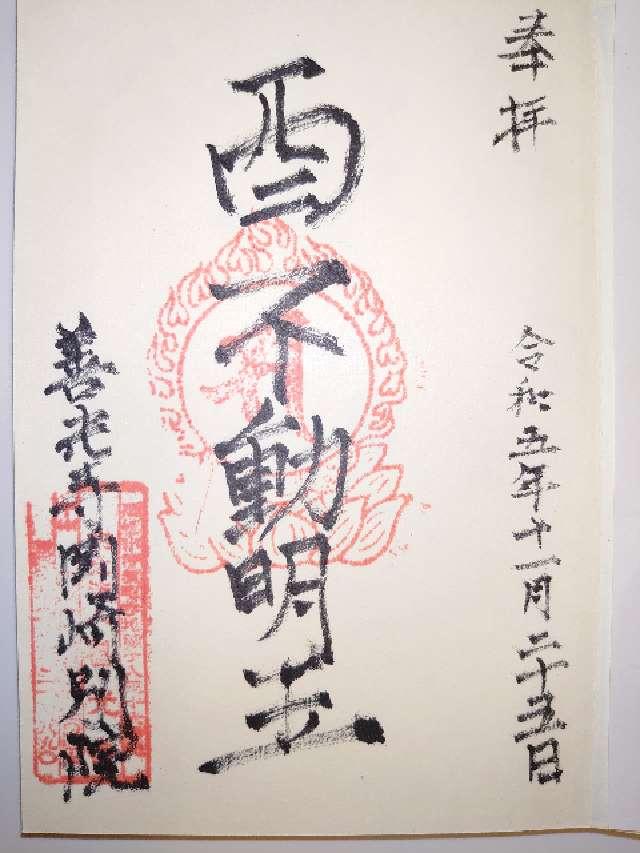 奉拝
令和五年十一月二十五日
酉不動明王
善光寺関崎別院